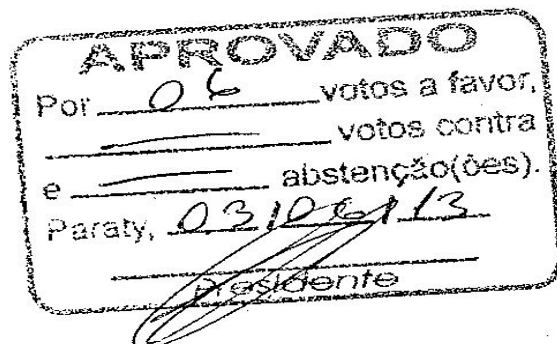 APROVADO
Por 06 votos a favor,
— votos contra
e — abstenção(ões).
Paraty, 03/06/13
Presidente